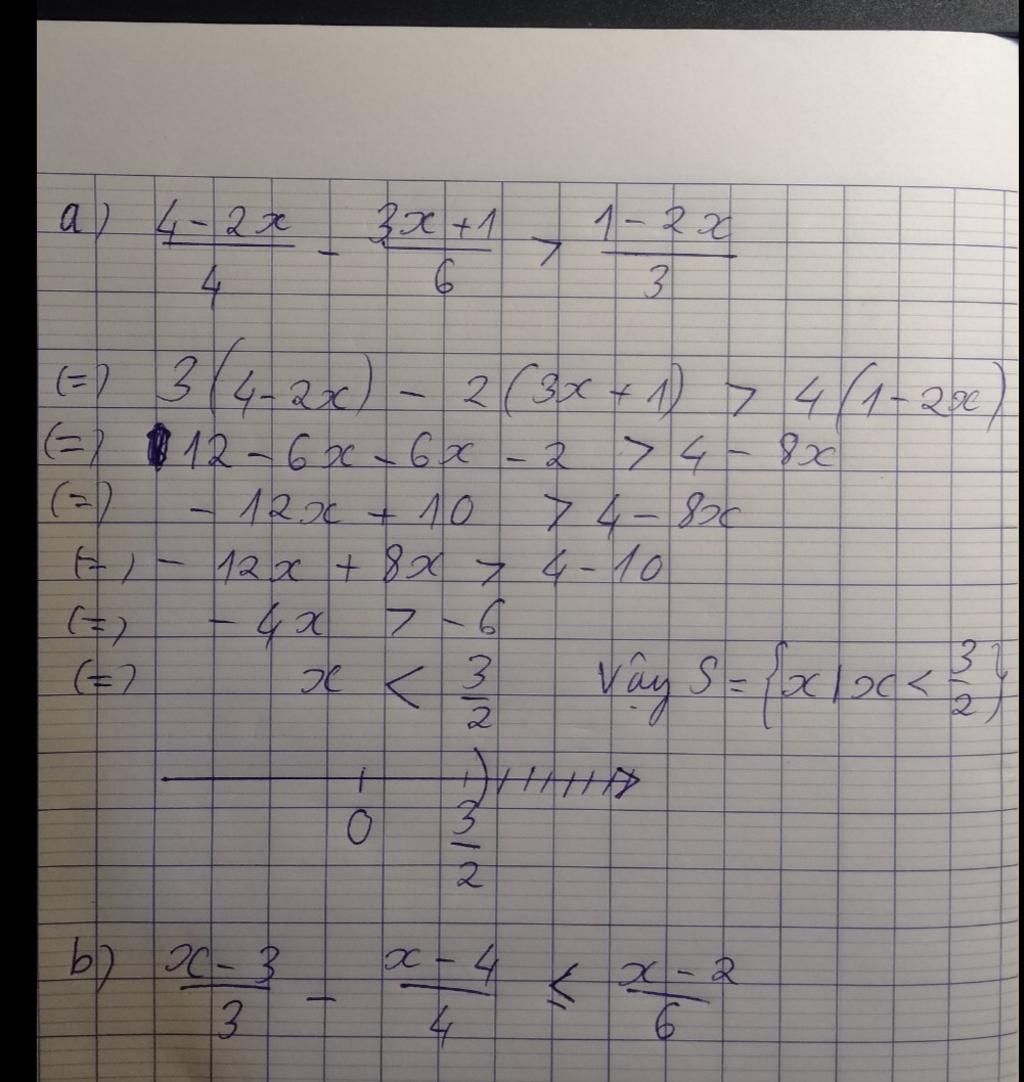 a) (4-2x)/4 - (3x+1)/6 > (1-2x)/3
(=) 3(4-2x) - 2(3x+1) > 4(1-2x)
(=) 12-6x-6x-2 > 4-8x
(=) -12x+10 > 4-8x
(=) -12x+8x > 4-10
(=) -4x > -6
(=) x < 3/2 Vậy S={x|x<3/2}
0 3/2
b) (x-3)/3 - (x-4)/4 ≤ (x-2)/6